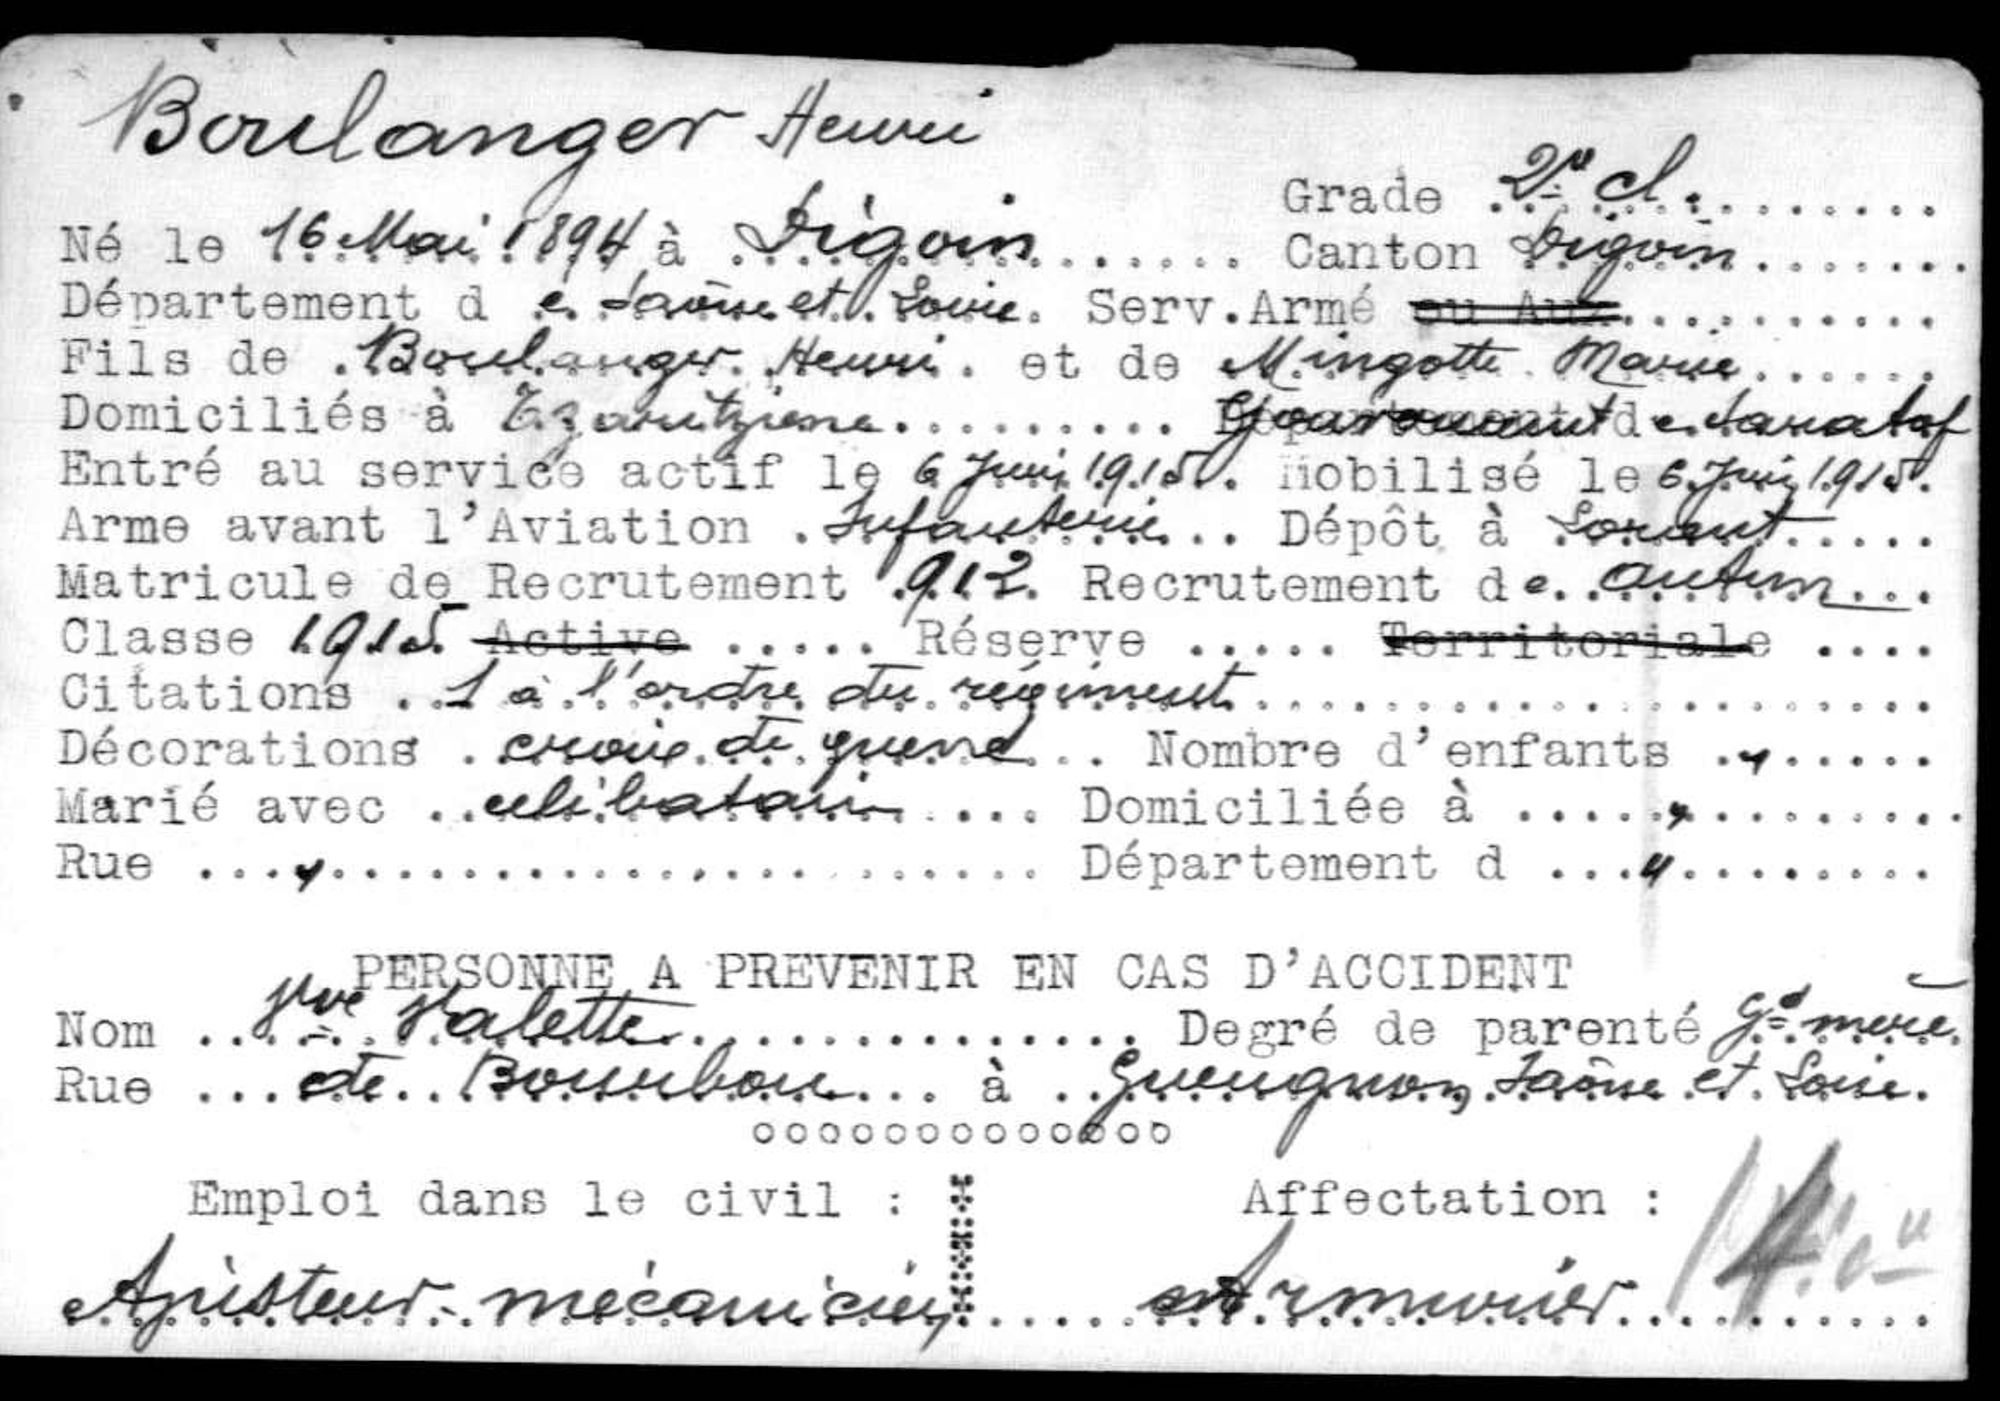 Boulanger Henri
Grade 2e cl.
Né le 16 Mai 1894 à Digoin Canton Digoin
Département de Saône et Loire. Serv. Armé ou Aux
Fils de Boulanger Henri et de Mingotte Marie
Domiciliés à Tzaritziene Gouvernement de Saratof
Entré au service actif le 6 Juin 1915. Mobilisé le 6 Juin 1915.
Arme avant l'Aviation Infanterie Dépôt à Lorient
Matricule de Recrutement 912. Recrutement de Autun
Classe 1915 Active ..... Réserve ..... Territoriale ....
Citations 1 à l'ordre du régiment
Décorations croix de guerre Nombre d'enfants "
Marié avec célibataire Domiciliée à "
Rue " Département d "
PERSONNE A PREVENIR EN CAS D'ACCIDENT
Nom Vve Valette Degré de parenté Gd mère
Rue de Bourbon à Gueugnon, Saône et Loire.
oooooooooooooo
Emploi dans le civil : Affectation :
Ajusteur-mécanicien Armurier